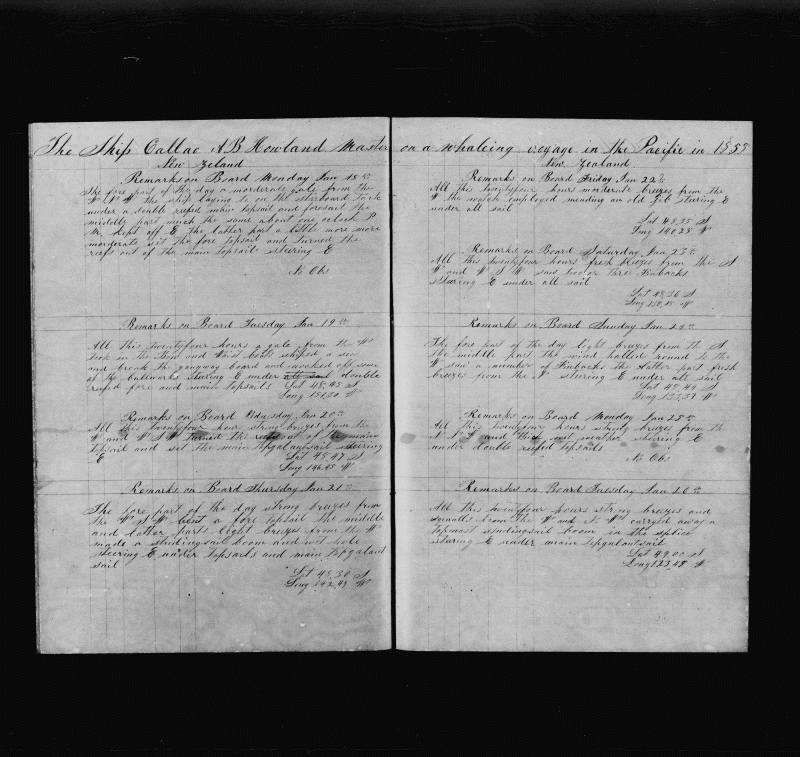 The Ship Callao A B Howland Master on a whaleing voyage in the Pacific in 1858
New Zeland
Remarks on Board Monday Jan 18th
The fore part of the day a morderate gale from the
W N W the ship laying to on the starboard tack
under a double reefed main topsail and foresail the
middle part much the same about one oclock P
M kept off E the latter part a little more more
morderate set the fore topsail and turned the
reefs out of the main topsail steering E
No Obs
Remarks on Board Tuesday Jan 19th
All this twentyfour hours a gale from the W
took in the Bow and Waist boats shiped a sea
and broak the gangway board and nocked off some
of the bulwarks steering E under all sail double
reefed fore and main topsails Lat 48,45 S
Long 151,30 W
Remarks on Board Wdnesday Jan 20th
All this twentyfour hour strong breezes from the
W and W S W turned the reefs out of the main
topsail and set the main topgalantsail steering
E Lat 48,47 S
Long 146,45 W
Remarks on Board Thursday Jan 21st
The fore part of the day strong breezes from
the W S W bent a fore topsail the middle
and latter parts light breezes from the W
made a studingsail boom and
steering E under topsails and main topgalant
sail
Lat 48,30 S
Long 142,49 W
New Zealand
Remarks on Board Friday Jan 22d
All this twentyfour hours morderate breezes from the
W the watch employed mending an old Jib steering E
under all sail
Lat 48,35 S
Long 140,28 W
Remarks on Board Saturday Jan 23d
All this twentyfour hours fresh breezes from the S
W and W S W saw two or three Finbacks
steering E under all sail
Lat 48,36 S
Long W
Remarks on Board Sunday Jan 24th
The fore part of the day light breezes from the S
the middle part the wind halled round to the
W saw a number of Finbacks the latter part fresh
breezes from the W steering E under all sail
Lat 48,44 S
Long W
Remarks on Board Monday Jan 25th
All this twentyfour hours strong breezes from the
and thick wet weather steering E
under double reefed topsails
No Obs
Remarks on Board Tuesday Jan 26th
All this twentyfour hours strong breezes and
squalls from the W and N W carried away a
topmast studingsail boom in the splice
steering E under main topgalantsail
Lat 49,00 S
Long 123,45 W